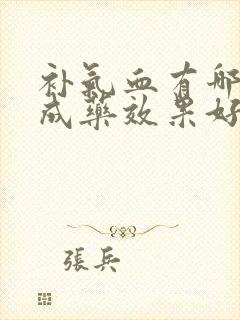 补氣血有哪
成藥效果好
張兵